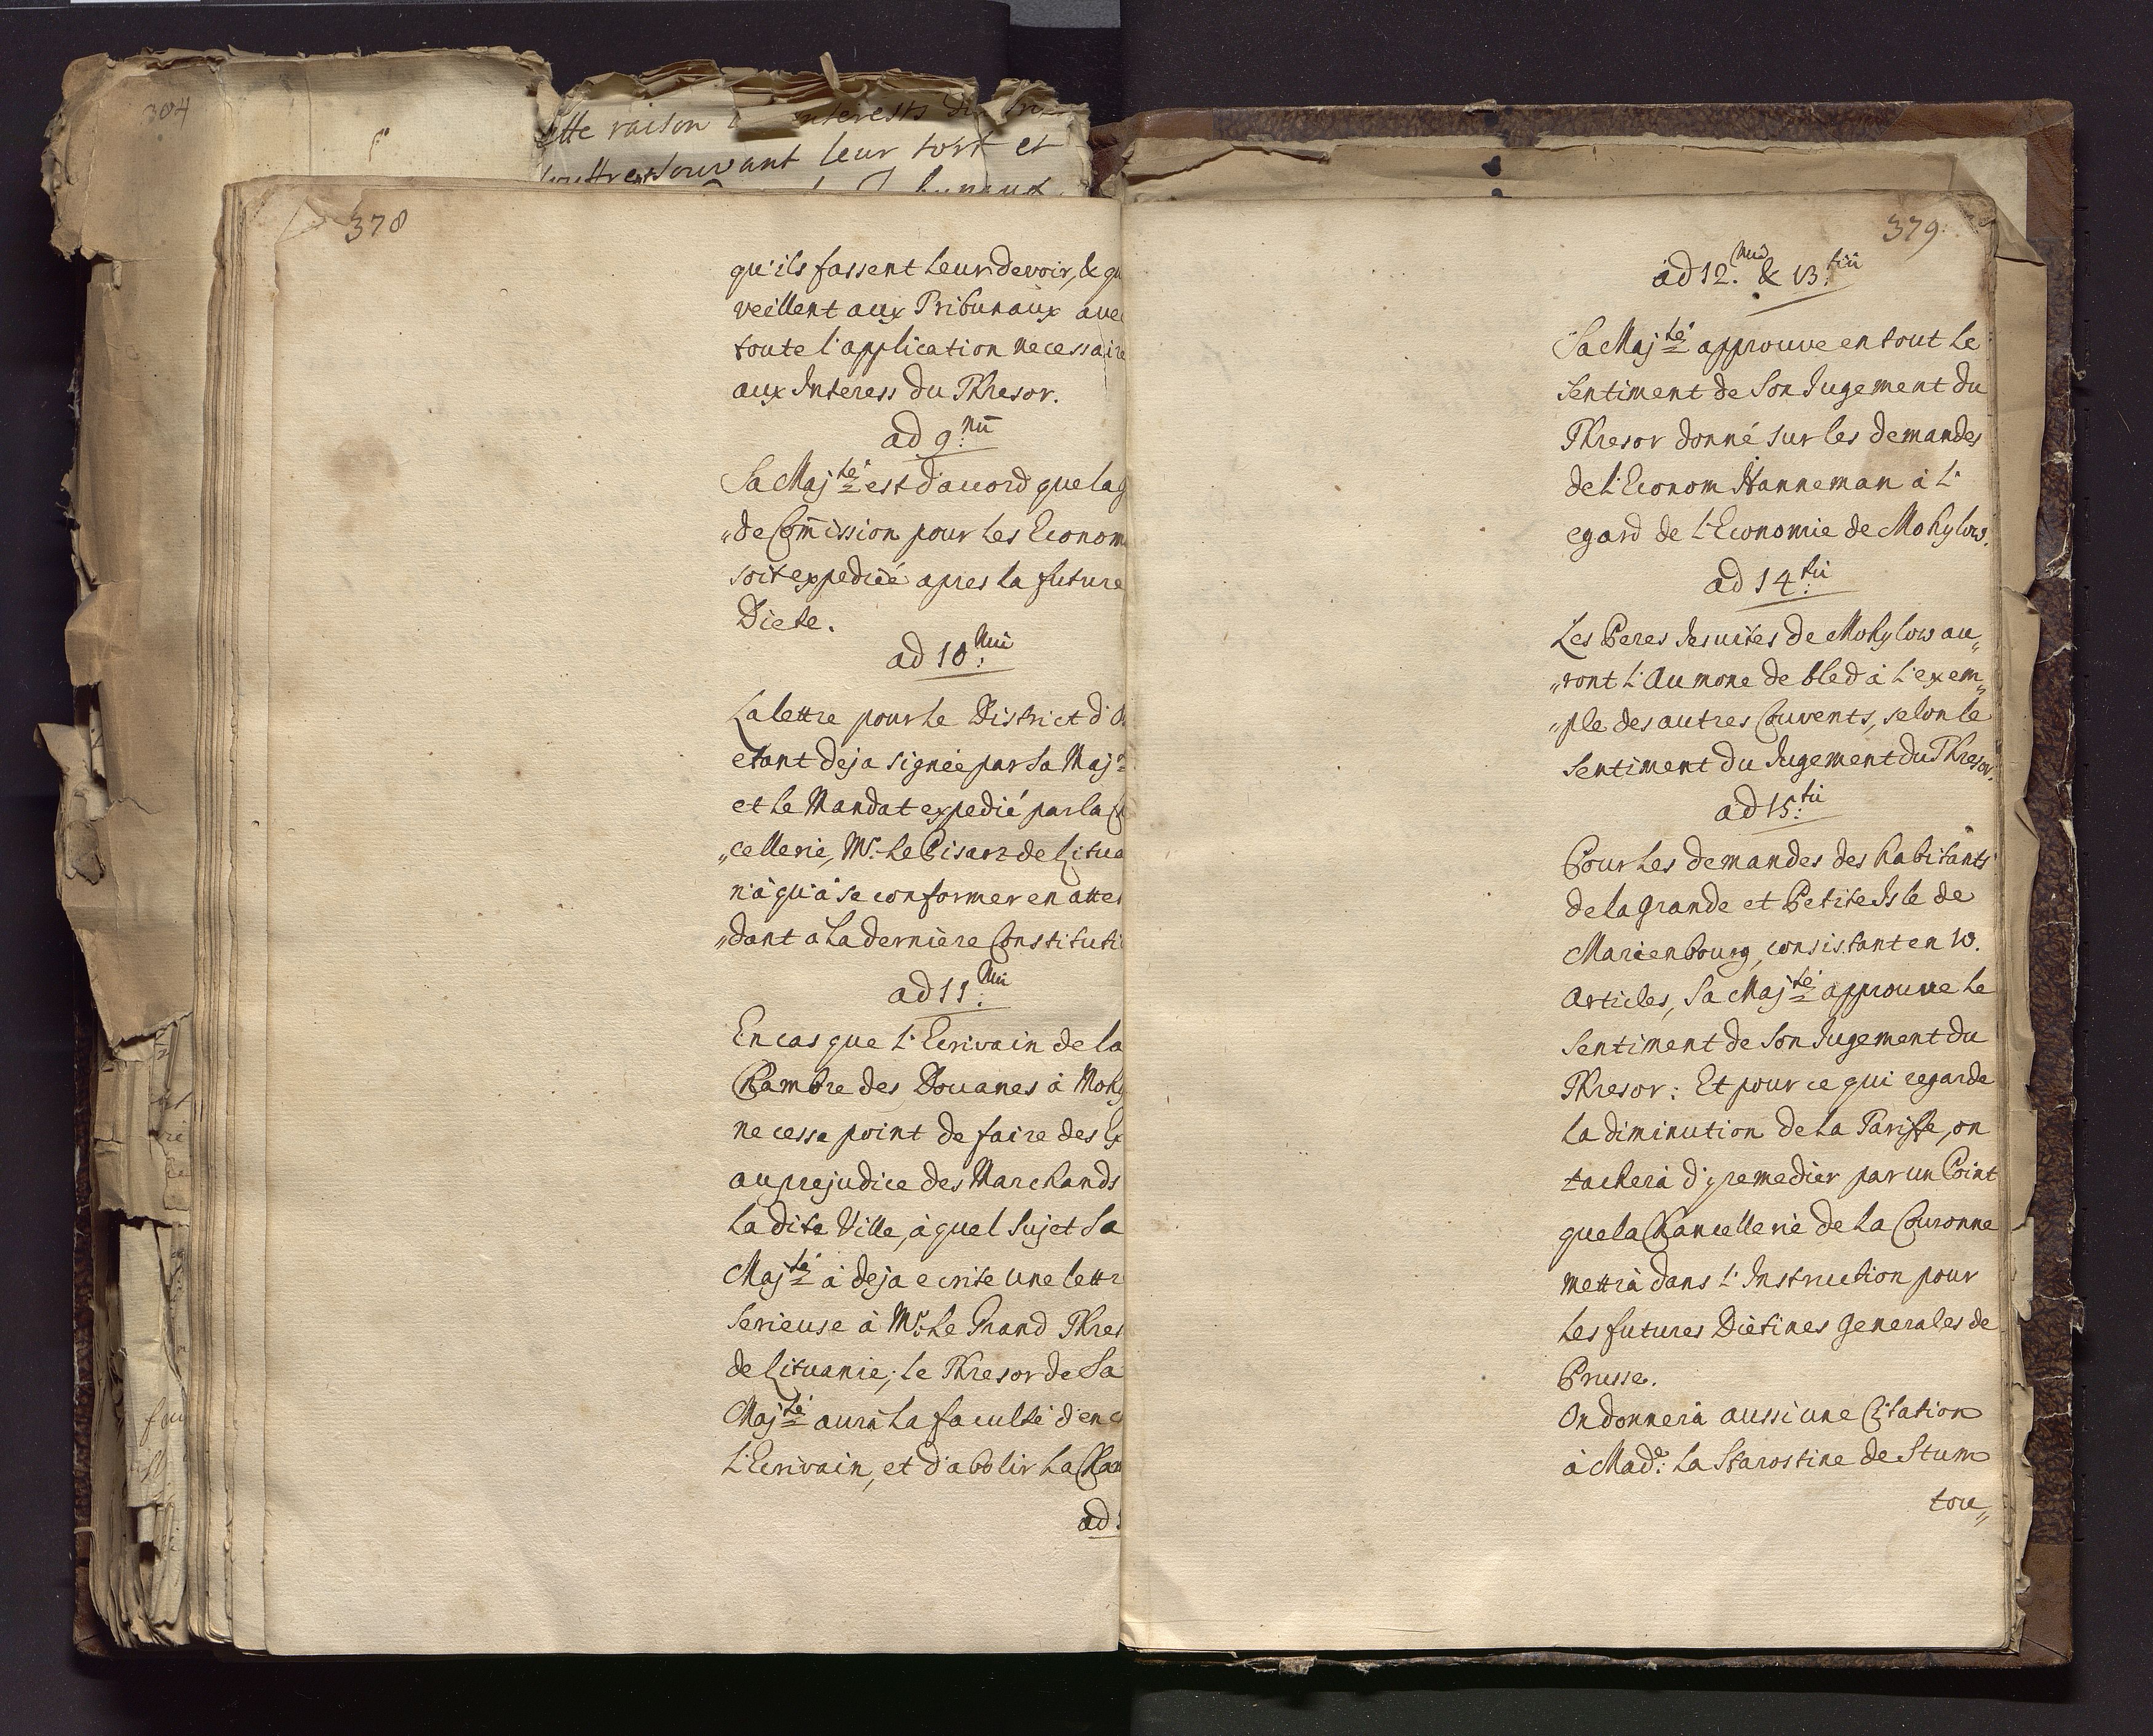 304
ette raison interests du
leur tort et
378
qu'ils fassent leur devoir, & qu
veillent aux Tribunaux avec
toute l'application necessaire
aux Interess du Thresor.
ad 9:nū
Sa Maj:té est d'accord que la
„de Com̄ission pour les Econom
soit expediée apres la future
Diete.
ad 10:mū
La lettre pour le District d'O
etant deja signée par Sa Maj
et le Mandat expedié par la
„cellerie, Mr. le Pisarz de Litua
n'à qu'à se conformer en atten
„dant à la dernière Constituti
ad 11:mū
En cas que l'Ecrivain de la
Chambre des Douanes à Mohy
ne cesse point de faire des Ex
au prejudice des Marchands
la dite Ville, à quel sujet Sa
Maj:té à deja ecrite une lettr
serieuse à Mr. le Grand Thres
de Lituanie; le Thresor de Sa
Maj:té aurà la faculté d'en
l'Ecrivain, et d'abolir la Cham
ad
379.
ad 12.mū & 13:tiū
Sa Maj:té approuve en tout le
sentiment de Son Jugement du
Thresor donné sur les demandes
de l'Econom Hanneman à l'
egard de l'Economie de Mohylow.
ad 14:tū
Les Peres Jesuites de Mohylow au„
„ront l'Aumone de bled à l'exem„
„ple des autres Couvents, selon le
sentiment du Jugement du Thresor.
ad 15:tū
Pour les demandes des habitants
de la grande et Petite Isle de
Marienbourg, consistant en 10.
Articles, Sa Maj:té approuve le
sentiment de Son Jugement du
Thresor: Et pour ce qui regarde
la diminution de la Tariffe, on
tacherà d'y remedier par un Point
que la Chancellerie de la Couronne
mettrà dans l'Instruction pour
les futures Diètines Generales de
Prusse.
On donnerà aussi une Citation
à Made: la Starostine de Stum
tou„